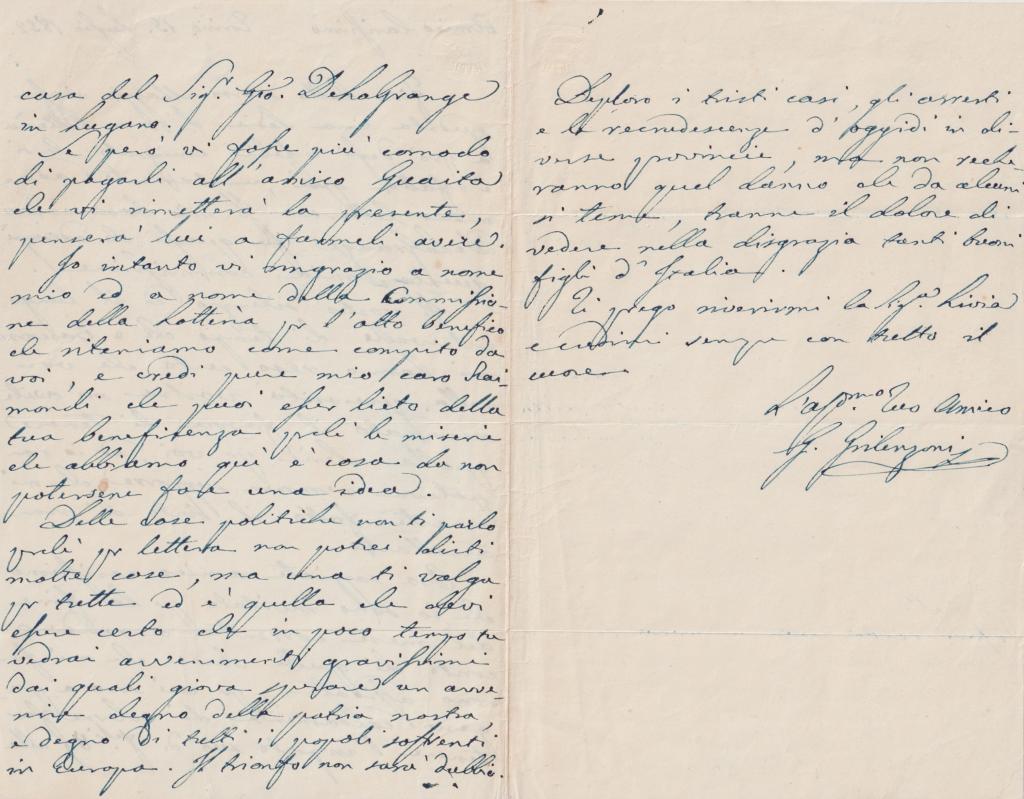 casa del Sigr. Gio. DehaGrange
in Lugano.
Se però vi fosse più comodo
di pagarli all'amico Guaita
che vi rimetterà la presente,
penserà lui a farmeli avere.
Io intanto vi ringrazio a nome
mio ed a nome della Commissio-
ne della Lotteria pr l'atto benefico
che riteniamo come compito da
voi, e credi pure mio caro Rai-
mondi che puoi esser lieto della
tua beneficenza perchè le miserie
che abbiamo quì è cosa da non
potersene fare una idea.
Delle cose politiche non ti parlo
perchè pr lettera non potrei dirti
molte cose, ma una ti valga
pr tutte ed è quella che devi
essere certo che in poco tempo tu
vedrai avvenimenti gravissimi
dai quali giova sperare un avve-
nire degno della patria nostra,
e degno di tutti i popoli soffrenti
in Europa. Il trionfo non sarà dubbio.
Deploro i tristi casi, gli arresti
e le recrudescenze d'oggidì in di-
verse provincie, ma non reche-
ranno quel danno che da alcuni
si teme, tranne il dolore di
vedere nella disgrazia tanti buoni
figli d'Italia.
Ti prego riverirmi la Sga. Livia
e credimi sempre con tutto il
cuore
L'affmo. tuo Amico
G. Grilenzoni